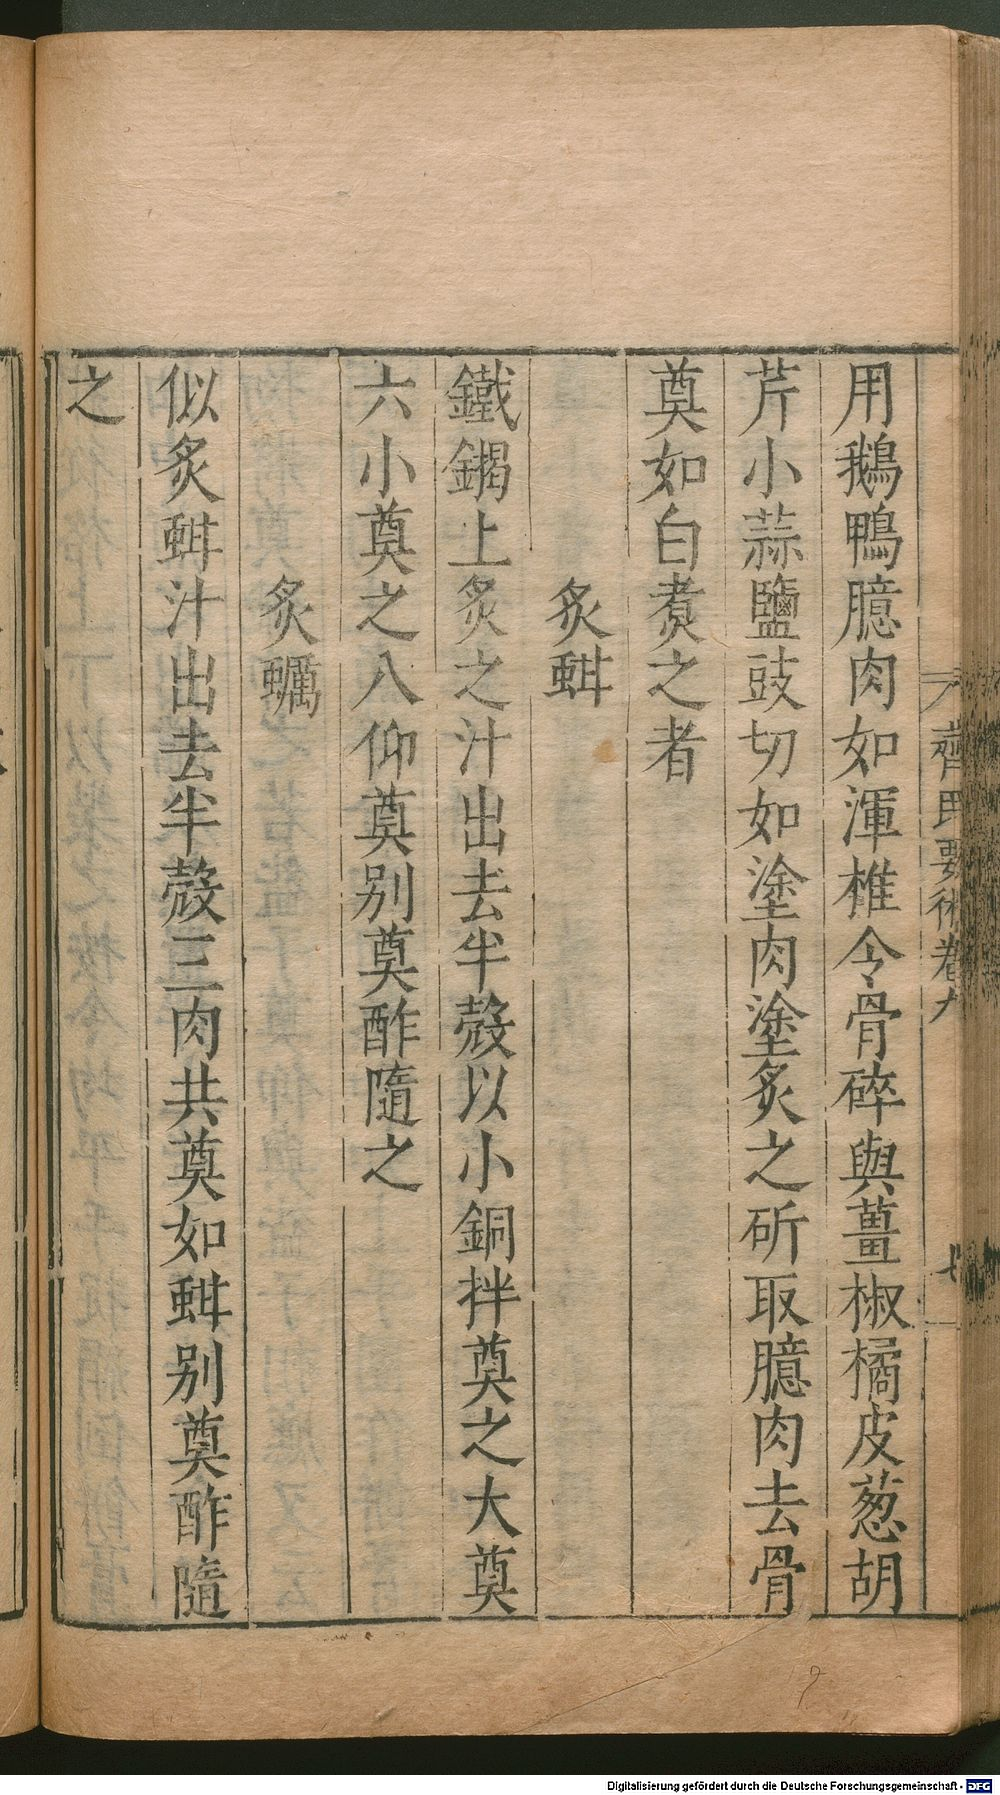 齊民要術卷九
七
用鵝鴨臆肉如渾椎令骨碎與薑椒橘皮葱胡
芹小蒜鹽豉切如塗肉塗炙之斫取臆肉去骨
奠如白煑之者
炙蚶
鐵鍚上炙之汁出去半殼以小銅拌奠之大奠
六小奠之八仰奠別奠酢隨之
炙蠣
似炙蚶汁出去半殼三肉共奠如蚶別奠酢隨
之
Digitalisierung gefördert durch die Deutsche Forschungsgemeinschaft - DFG